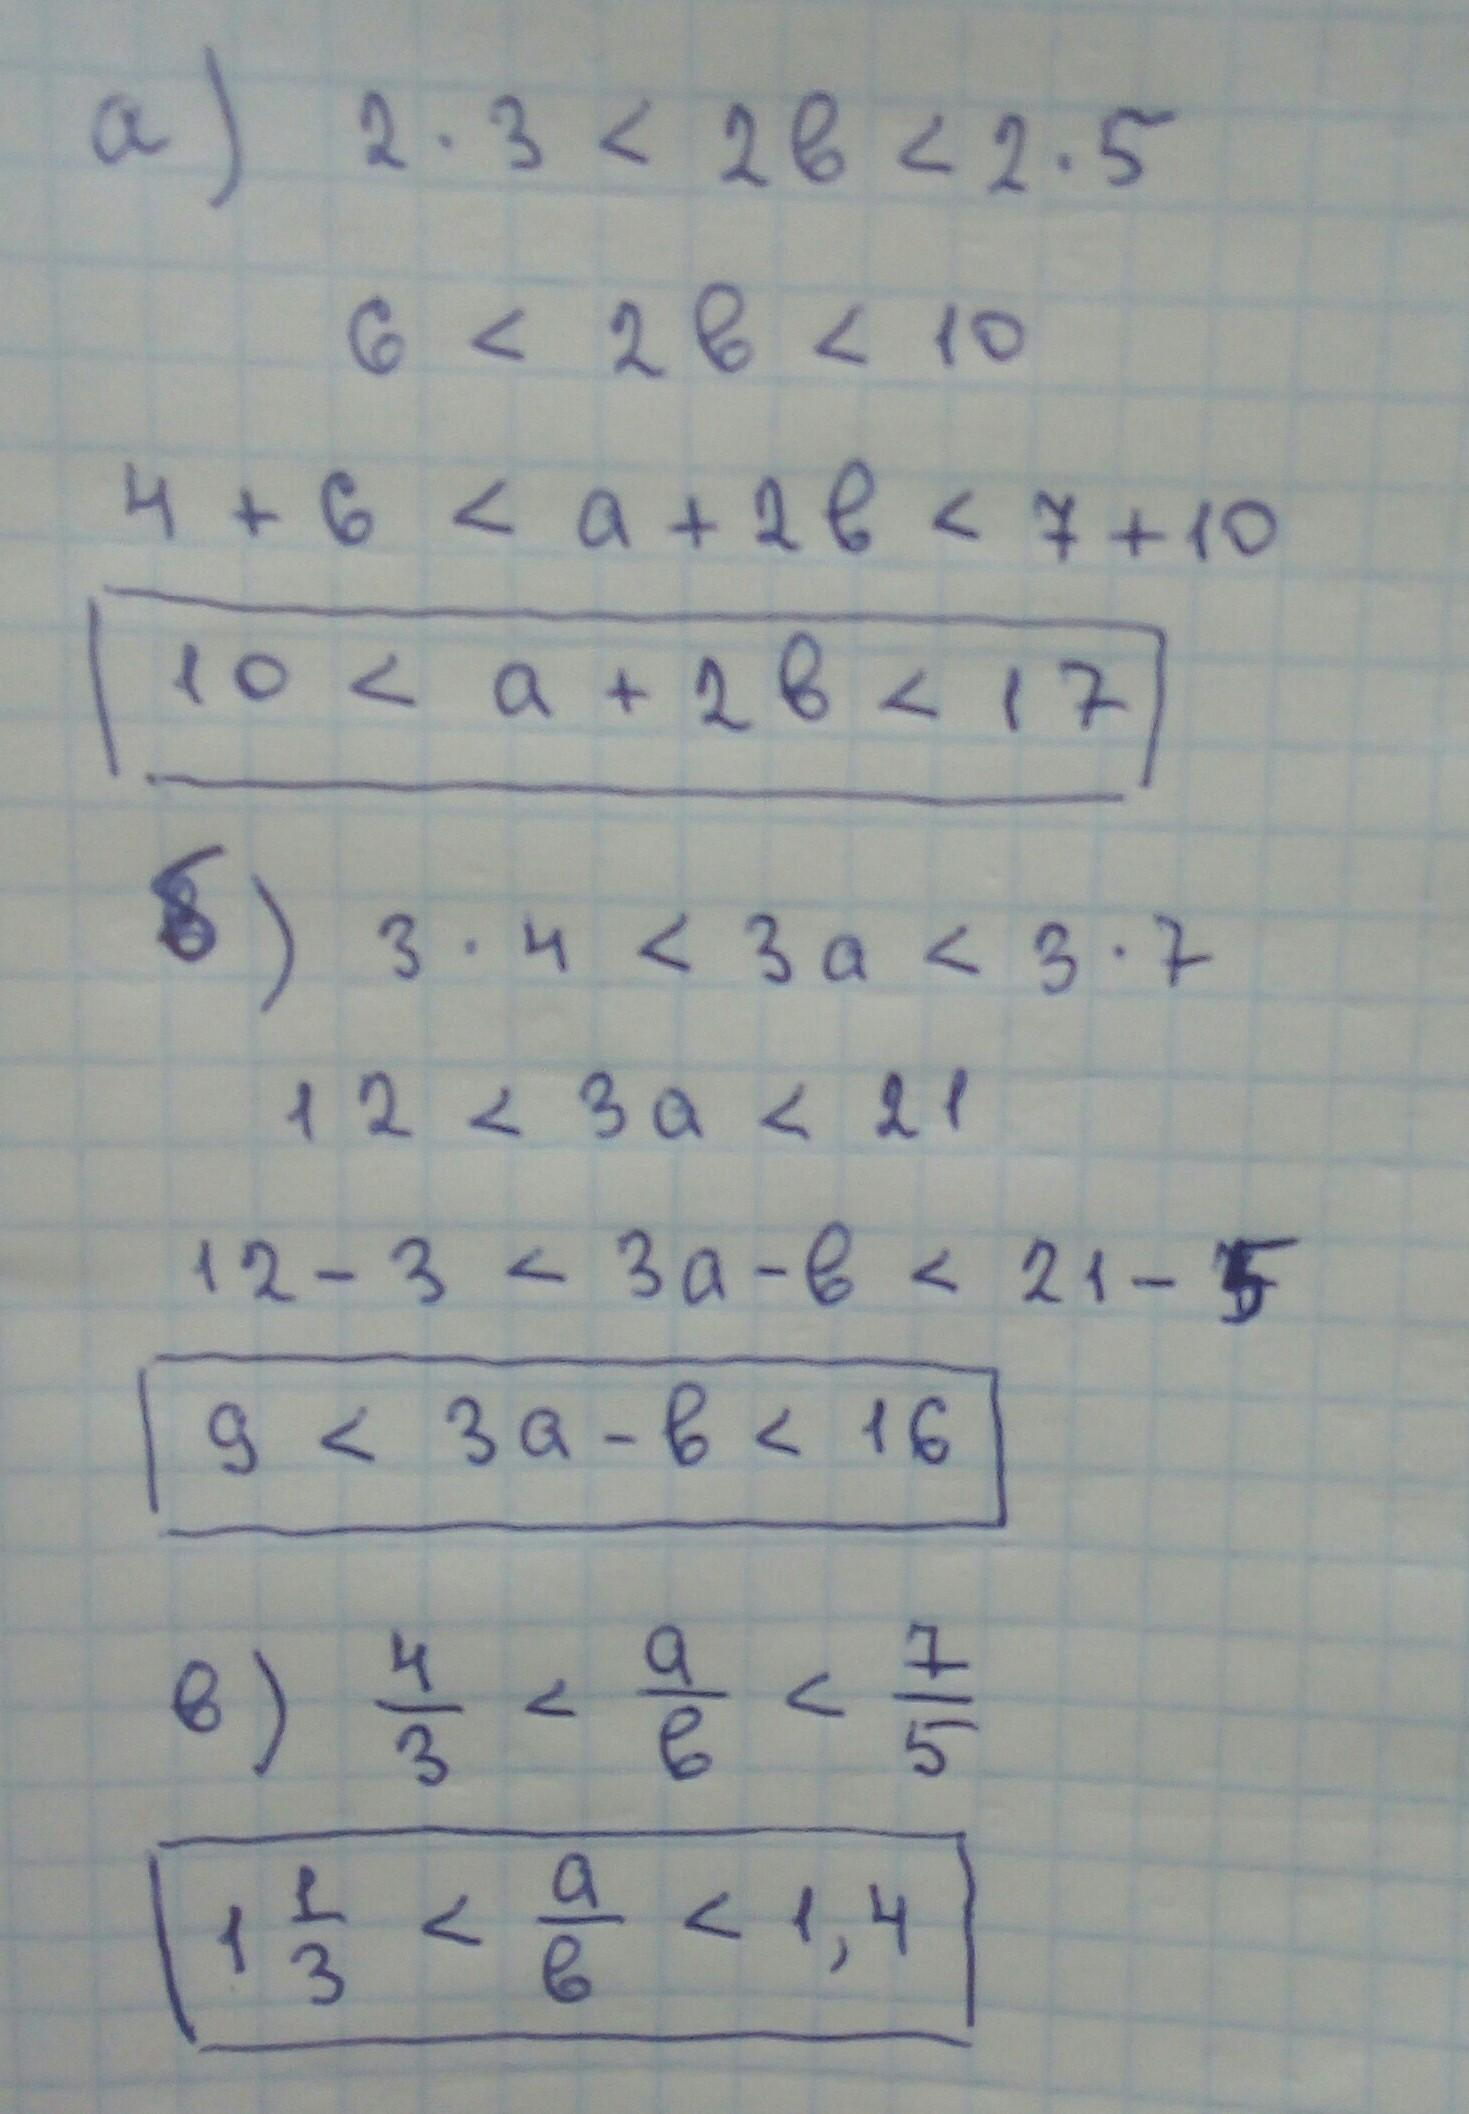 а) 2 · 3 < 2в < 2 · 5
6 < 2в < 10
4 + 6 < а + 2в < 7 + 10
10 < а + 2в < 17
б) 3 · 4 < 3а < 3 · 7
12 < 3а < 21
12 - 3 < 3а - в < 21 - 5
9 < 3а - в < 16
в) 4/3 < а/в < 7/5
1 1/3 < а/в < 1,4